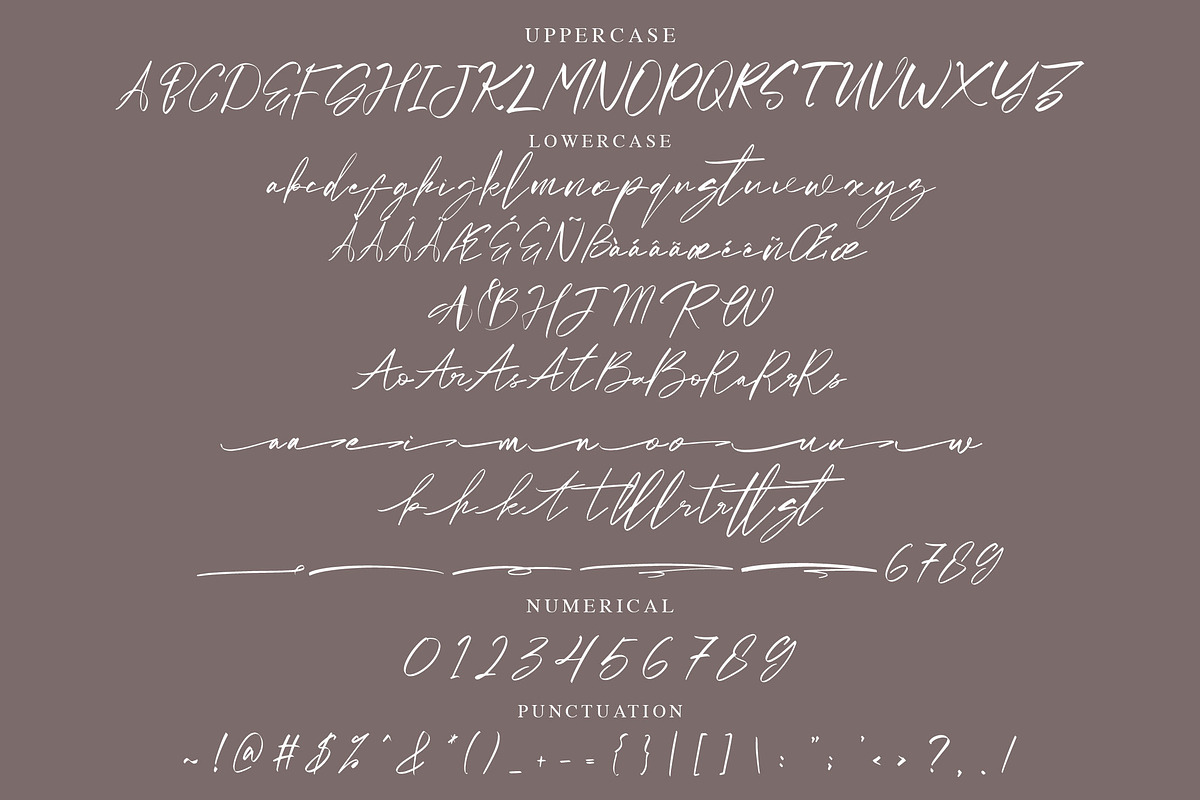 UPPERCASE
ABCDEFGHIJKLMNOPQRSTUVWXYZ
LOWERCASE
abcdefghijklmnopqrstuvwxyz
ÀÁÂÃÆÉÊÑßàáâãæéêñŒœ
ABHJMRW
AoArAsAtBaBoRaRrRs
aaeimnoouuw
bhkttllrtrttst
6789
NUMERICAL
0123456789
PUNCTUATION
~!@#$%^&*()_+-={}|[]\:";'<>?,./